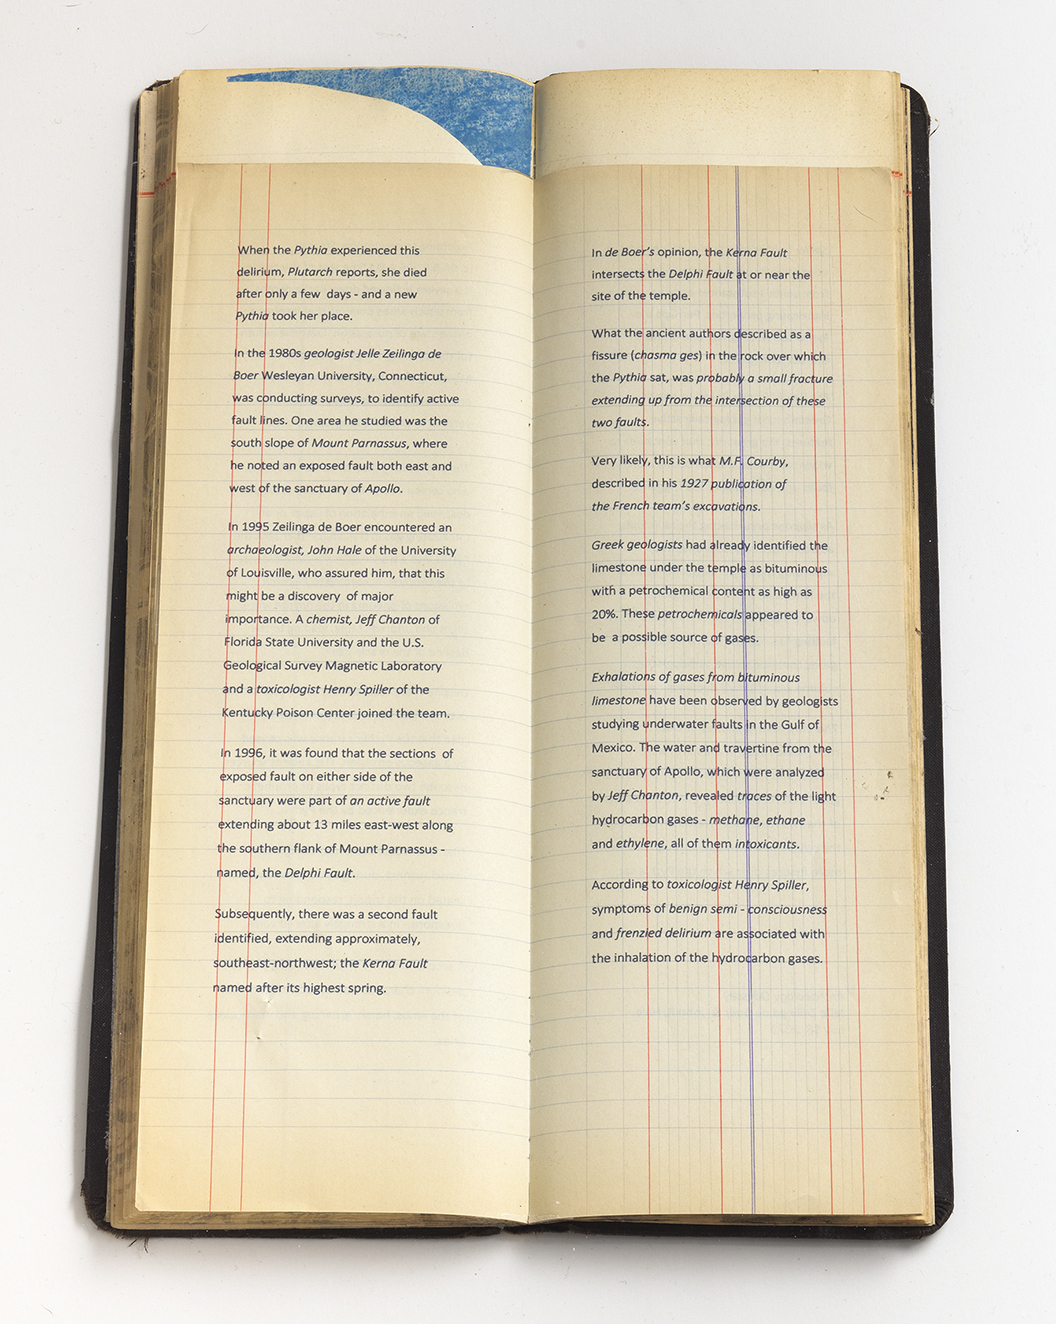 When the Pythia experienced this
delirium, Plutarch reports, she died
after only a few  days - and a new
Pythia took her place.
In the 1980s geologist Jelle Zeilinga de
Boer Wesleyan University, Connecticut,
was conducting surveys, to identify active
fault lines. One area he studied was the
south slope of Mount Parnassus, where
he noted an exposed fault both east and
west of the sanctuary of Apollo.
In 1995 Zeilinga de Boer encountered an
archaeologist, John Hale of the University
of Louisville, who assured him, that this
might be a discovery  of major
importance. A chemist, Jeff Chanton of
Florida State University and the U.S.
Geological Survey Magnetic Laboratory
and a toxicologist Henry Spiller of the
Kentucky Poison Center joined the team.
In 1996, it was found that the sections  of
exposed fault on either side of the
sanctuary were part of an active fault
extending about 13 miles east-west along
the southern flank of Mount Parnassus -
named, the Delphi Fault.
Subsequently, there was a second fault
identified, extending approximately,
southeast-northwest; the Kerna Fault
named after its highest spring.
In de Boer's opinion, the Kerna Fault
intersects the Delphi Fault at or near the
site of the temple.
What the ancient authors described as a
fissure (chasma ges) in the rock over which
the Pythia sat, was probably a small fracture
extending up from the intersection of these
two faults.
Very likely, this is what M.F. Courby,
described in his 1927 publication of
the French team's excavations.
Greek geologists had already identified the
limestone under the temple as bituminous
with a petrochemical content as high as
20%. These petrochemicals appeared to
be  a possible source of gases.
Exhalations of gases from bituminous
limestone have been observed by geologists
studying underwater faults in the Gulf of
Mexico. The water and travertine from the
sanctuary of Apollo, which were analyzed
by Jeff Chanton, revealed traces of the light
hydrocarbon gases - methane, ethane
and ethylene, all of them intoxicants.
According to toxicologist Henry Spiller,
symptoms of benign semi - consciousness
and frenzied delirium are associated with
the inhalation of the hydrocarbon gases.